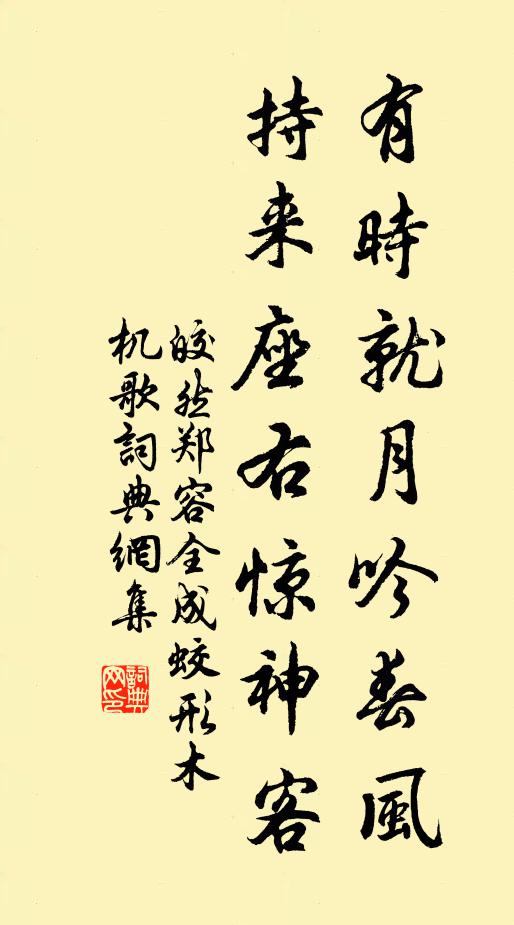 有時就月吟春風
持来座右惊神客
皎然郑容全成蛟形木
机歌詞典網集
詞典
网印